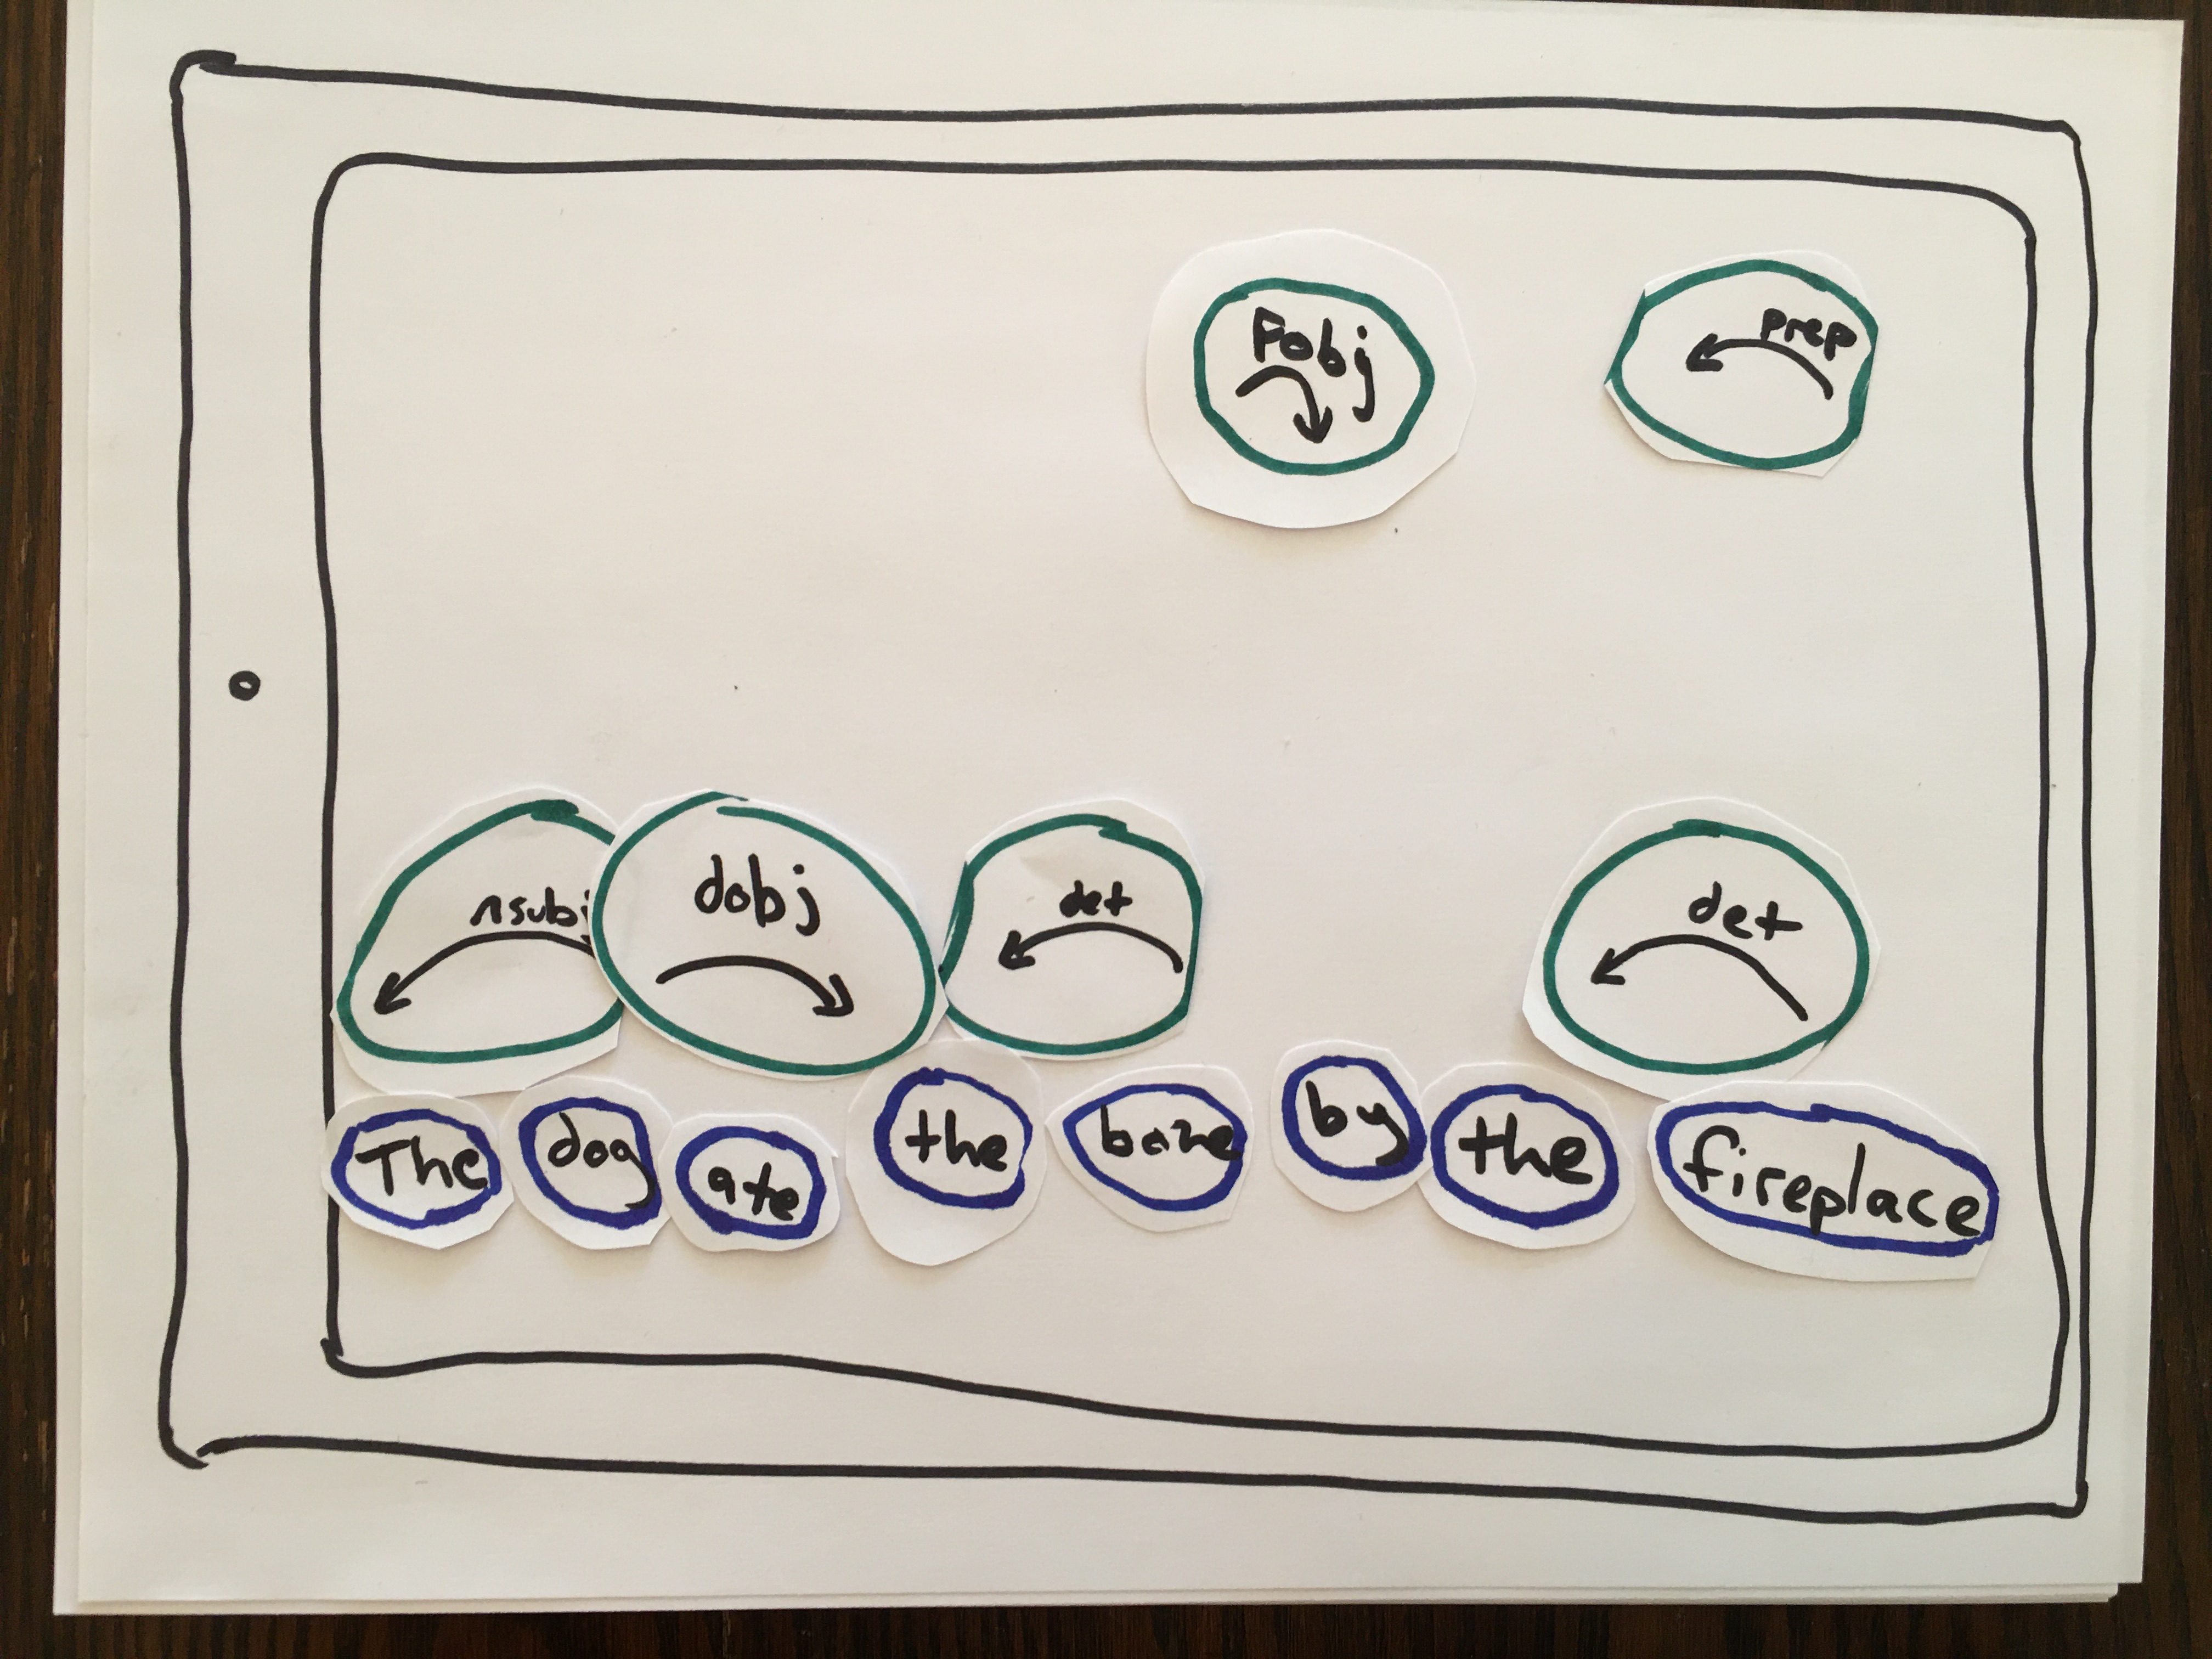 Pobj prep
nsubj dobj det det
The dog ate the bone by the fireplace